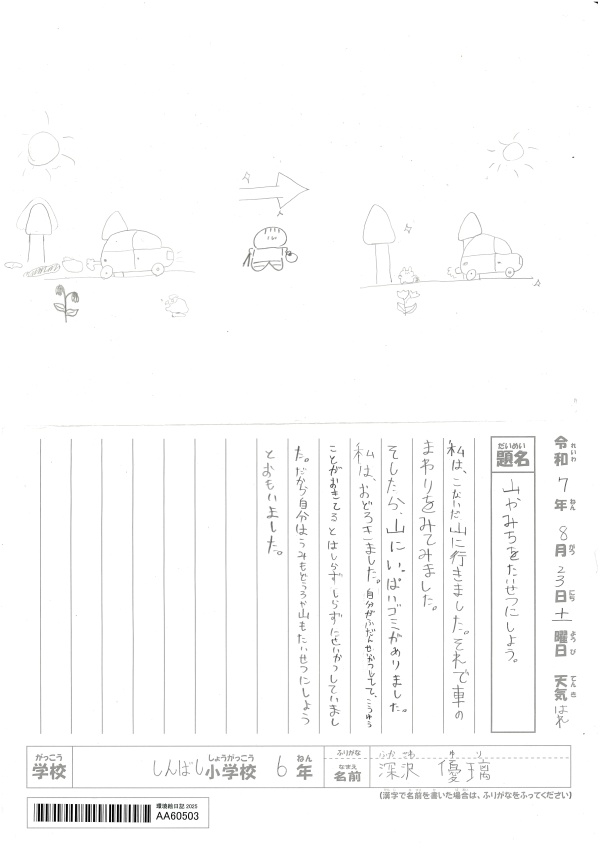 令和7年8月23日土曜日 天気 はれ
れいわ ねん がつ にち ようび てんき
だいめい
題名
山やみちをたいせつにしよう。
私は、こないだ山に行きました。それで車の
まわりをみてみました。
そしたら、山にいっぱいゴミがありました。
私は、おどろきました。自分がふだんせいかつしてて、こうゆう
ことがおきてるとはしらずしらずにせいかつしていまし
た。だから自分はうみもどうろか山もたいせつにしよう
とおもいました。
がっこう
学校
しんばし小学校 6年
しょうがっこう ねん
ふりがな
ふかさわ ゆり
なまえ
名前
深沢 優璃
(漢字で名前を書いた場合は、ふりがなをふってください)
環境絵日記 2025
AA60503